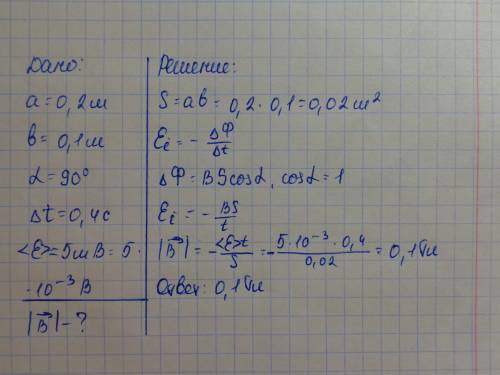 Дано:
a = 0,2 м
в = 0,1 м
α = 90°
Δt = 0,4 с
<Ɛ> = 5 мВ = 5 ·
· 10⁻³ В
|B⃗| - ?
Решение:
S = aв = 0,2 · 0,1 = 0,02 м²
Ɛi = - ΔФ/Δt
ΔФ = BS cosα, cosα = 1
Ɛi = - BS/t
|B⃗| = - <Ɛ>t/S = - 5 · 10⁻³ · 0,4/0,02 = 0,1 Тл
Ответ: 0,1 Тл